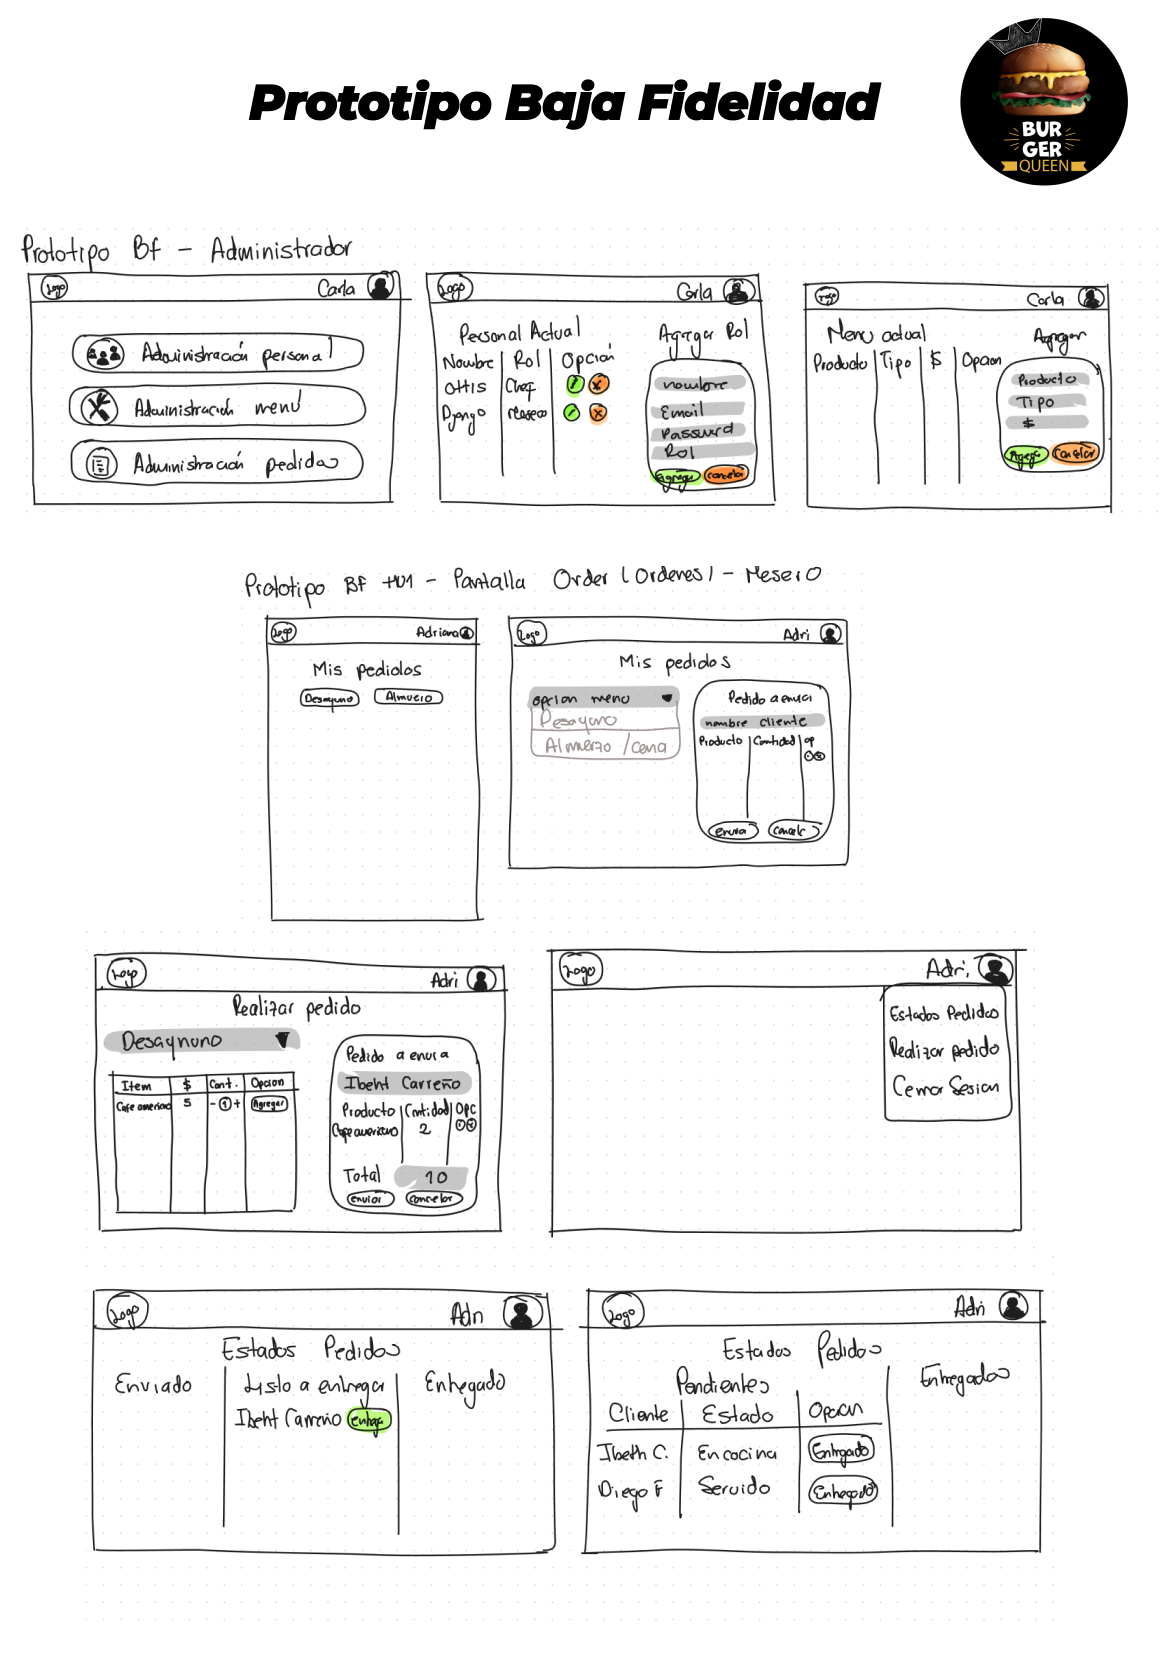 Prototipo Baja Fidelidad
BUR
GER
QUEEN
Prototipo Bf - Administrador
Logo Carla
Administración personal
Administración menú
Administración pedidos
Logo Carla
Personal Actual
Agregar Rol
Nombre Rol Opción
Othis Chef
Django Mesero
nombre
Email
Password
Rol
Agregar Cancelar
Logo Carla
Menu actual
Agregar
Producto Tipo $ Opcion
Producto
Tipo
$
Agregar Cancelar
Prototipo BF HU1 - Pantalla Order (Ordenes) - Mesero
Logo Adriana
Mis pedidos
Desayuno Almuerzo
Logo Adri
Mis pedidos
opcion menu
Desayuno
Almuerzo / cena
Pedido a enviar
nombre cliente
Producto Cantidad op
enviar cancelar
Logo Adri
Realizar pedido
Desaynuno
Item $ Cant. Opcion
Cafe americano 5 - 1 + Agregar
Pedido a envia
Ibeht Carreño
Producto Cantidad Opc
Cafe americano 2
Total 10
enviar cancelar
Logo Adri
Estados Pedidos
Realizar pedido
Cerrar Sesion
Logo Adri
Estados Pedidos
Enviado Listo a entregar Entregado
Ibeht Carreño
Logo Adri
Estados Pedidos
Pendientes
Entregados
Cliente Estado Opcion
Ibeth C. En cocina Entregado
Diego F Servido Entregado